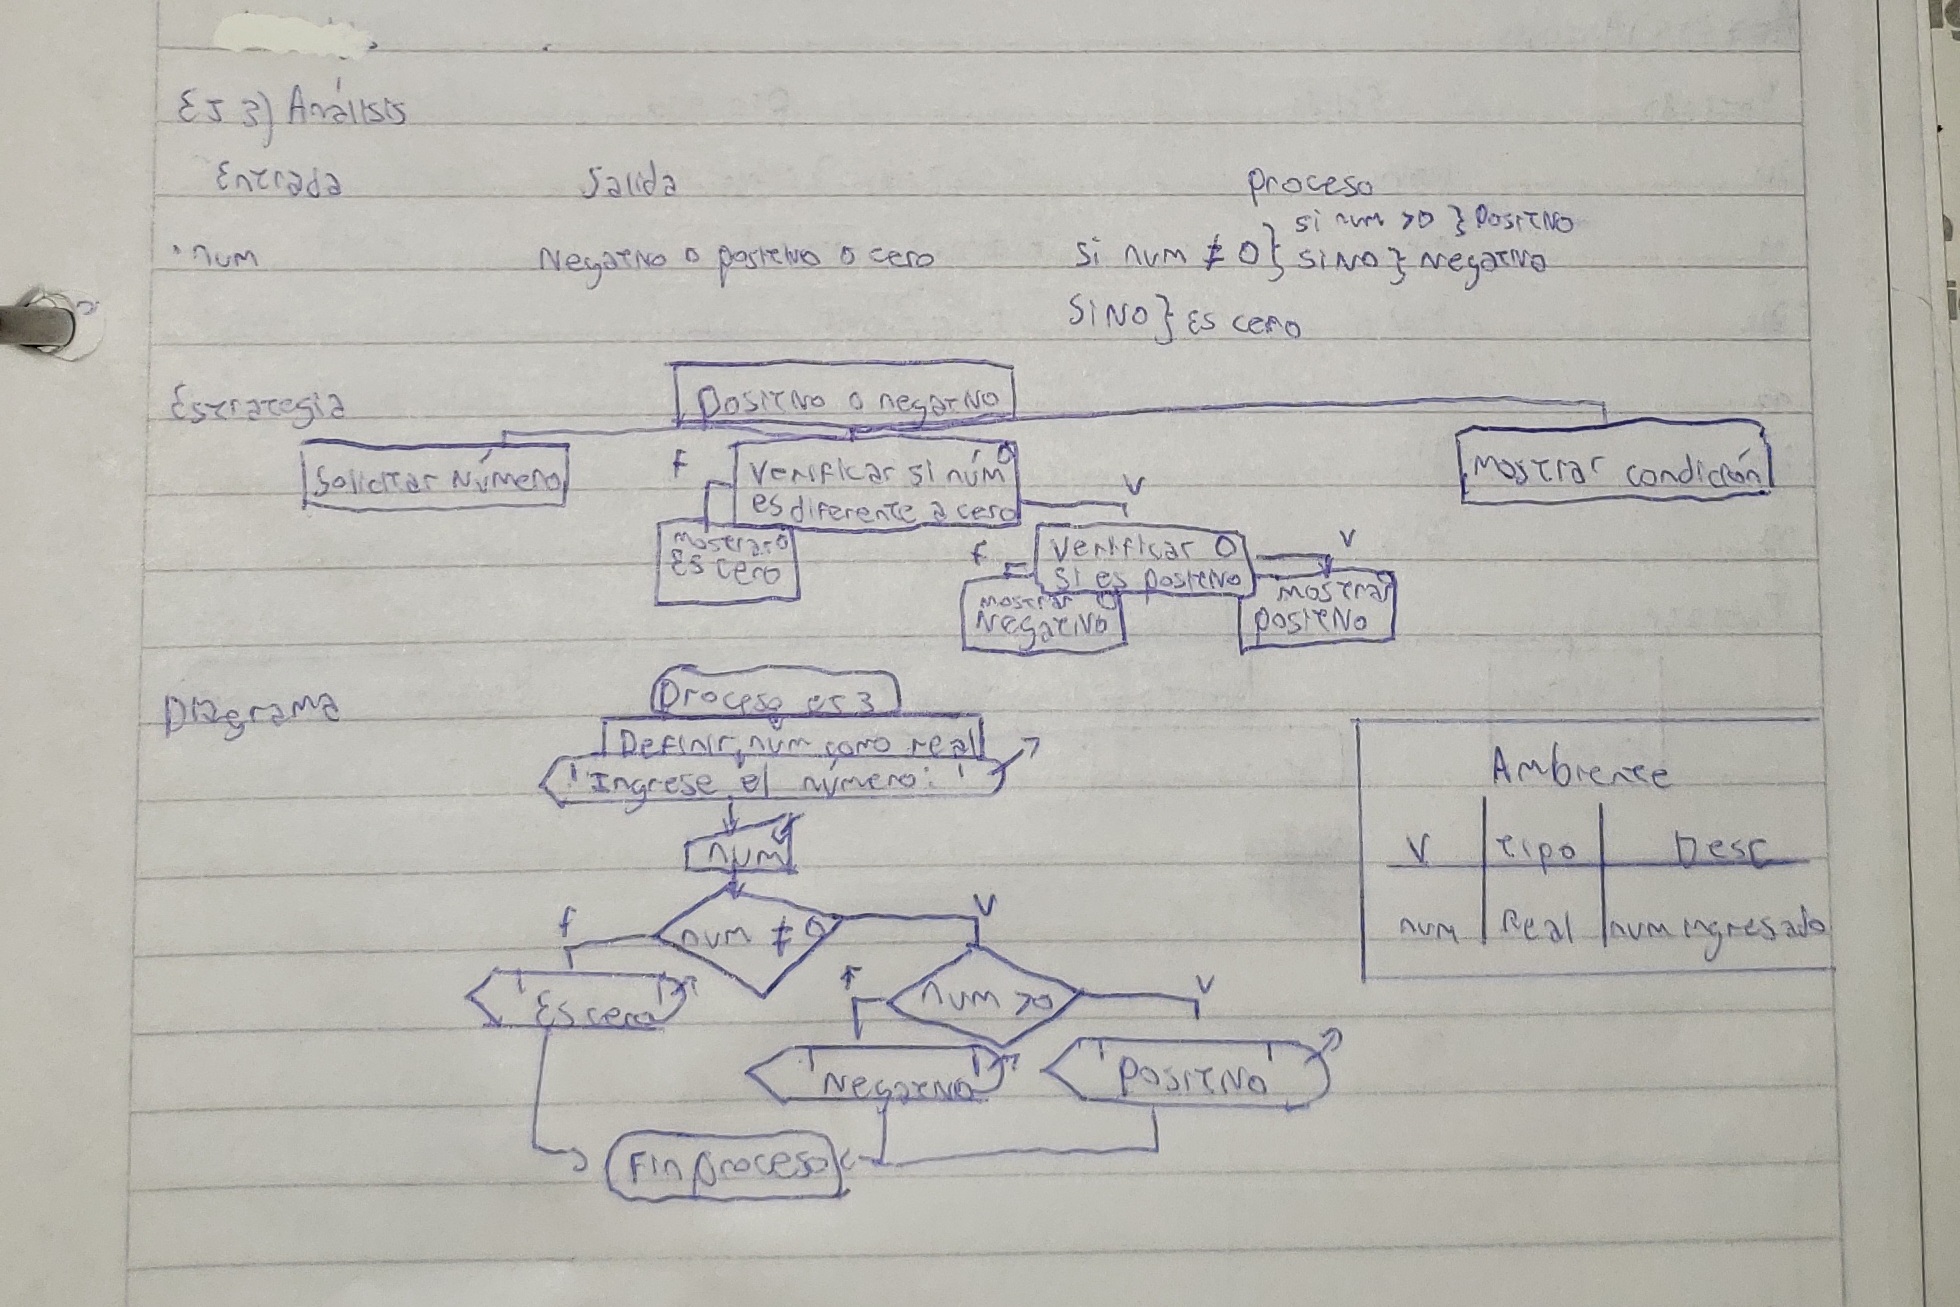 EJ 3) Análisis
Entrada Salida proceso
• num Negativo o positivo o cero si num ≠ 0 } si num >0 } Positivo
SiNO } Negativo
SiNO } Es cero
Estrategia
Positivo o negativo
Solicitar Número
F Verificar si núm V
es diferente a cero
Mostrar condición
mostrar
Es cero
F Verificar V
si es positivo
mostrar
Negativo
mostrar
positivo
Diagrama
Proceso ej 3
Definir num como real
'Ingrese el número: '
num
f num ≠ 0 V
'Es cero'
f num >0 V
'Negativo' 'Positivo'
Fin proceso
Ambiente
V tipo Desc
num Real num ingresado